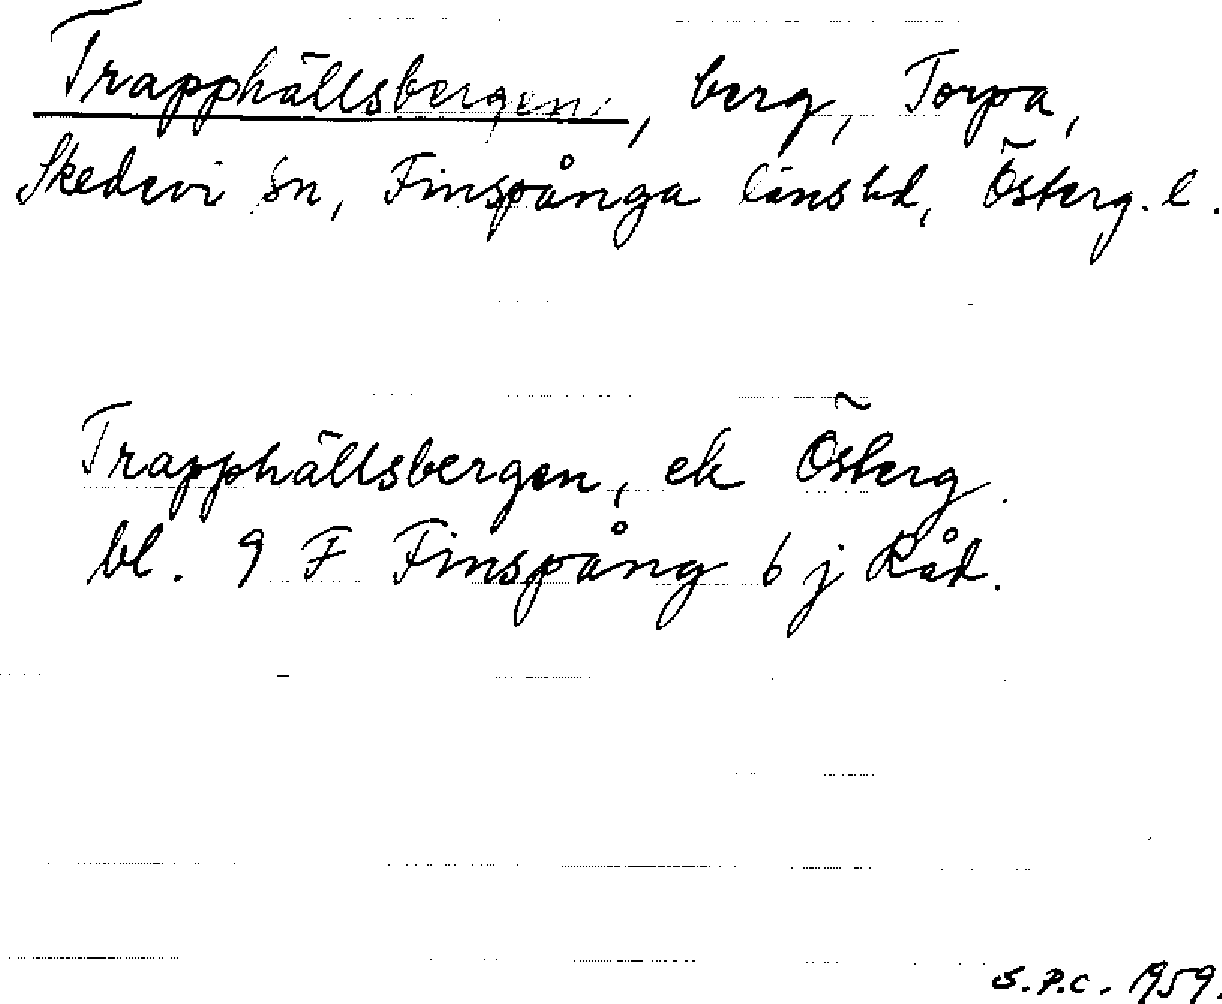 Trapphällsbergen, berg, Torpa,
Skedevi sn, Finspånga länshd, Österg. l.
Trapphällsbergen, ek Österg.
bl. 9 F Finspång 6 j Råd.
S.P.C. 1959.